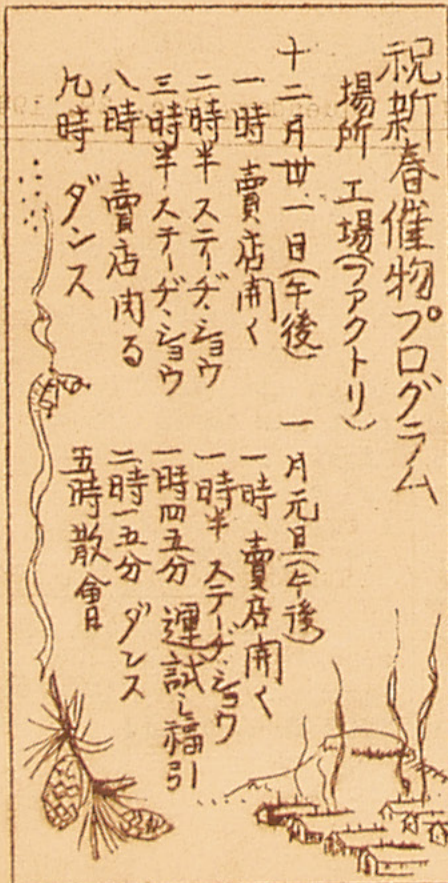 祝新春催物プログラム
場所 工場(ファクトリ)
十二月卅一日(午後)
一時 賣店開く
二時半 ステーヂ・ショウ
三時半 ステーヂ・ショウ
八時 賣店閉る
九時 ダンス
一月元旦(午後)
一時 賣店開く
一時半 ステーヂ・ショウ
一時四五分 運試し福引
二時一五分 ダンス
五時散會